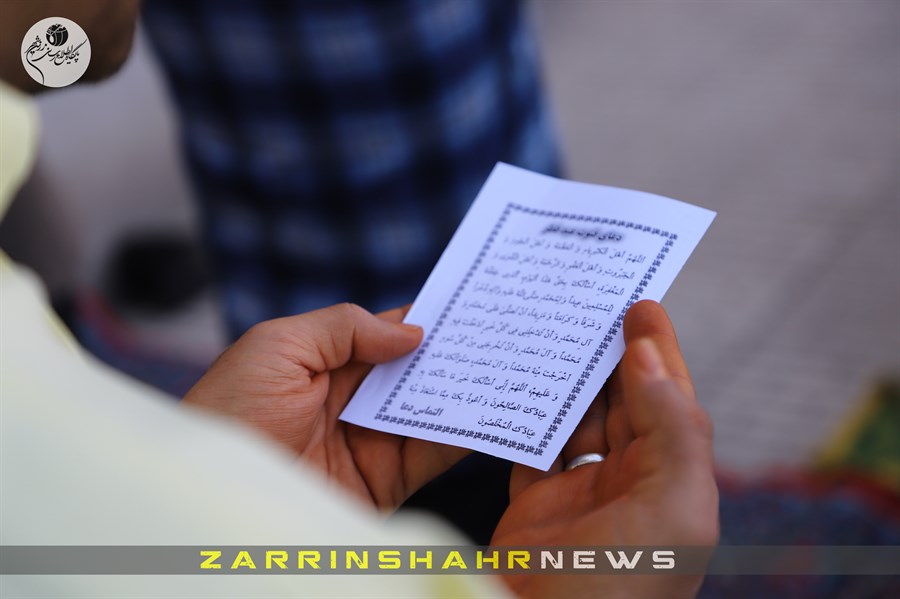 پایگاه اطلاع رسانی زرین شهر
دعای قنوت عید فطر
اَللّهُمَّ اَهْلَ الْكِبْرِیاءِ وَ الْعَظَمَةِ وَ اَهْلَ الْجُودِ وَ
الْجَبَرُوتِ وَ اَهْلَ الْعَفْوِ وَ الرَّحْمَةِ وَ اَهْلَ التَّقْوى وَ
الْمَغْفِرَةِ اَسْاَلُكَ بِحَقِّ هذَا الْیَوْمِ الَّذى جَعَلْتَهُ
لِلْمُسْلِمینَ عیداً وَ لِمُحَمَّدٍ صَلَّى اللهُ عَلَیْهِ وَ آلِهِ ذُخْراً
وَ شَرَفاً وَ كَرامَةً وَ مَزیداً، اَنْ تُصَلِّىَ عَلى مُحَمَّدٍ وَ
آلِ مُحَمَّدٍ وَ اَنْ تُدْخِلَنى فى كُلِّ خَیْرٍ اَدْخَلْتَ فیهِ
مُحَمَّداً وَ آلَ مُحَمَّدٍ وَ اَنْ تُخْرِجَنى مِنْ كُلِّ سُوءٍ
اَخْرَجْتَ مِنْهُ مُحَمَّداً وَ آلَ مُحَمَّدٍ، صَلَواتُكَ عَلَیْهِ
وَ عَلَیْهِمْ، اَللّهُمَّ اِنّى اَسْاَلُكَ خَیْرَ ما سَاَلَكَ بِهِ
عِبادُكَ الصّالِحُونَ وَ اَعُوذُ بِكَ مِمَّا اسْتَعاذَ مِنْهُ
عِبادُكَ الْمُخْلَصُونَ
التماس دعا
ZARRINSHAHRNEWS